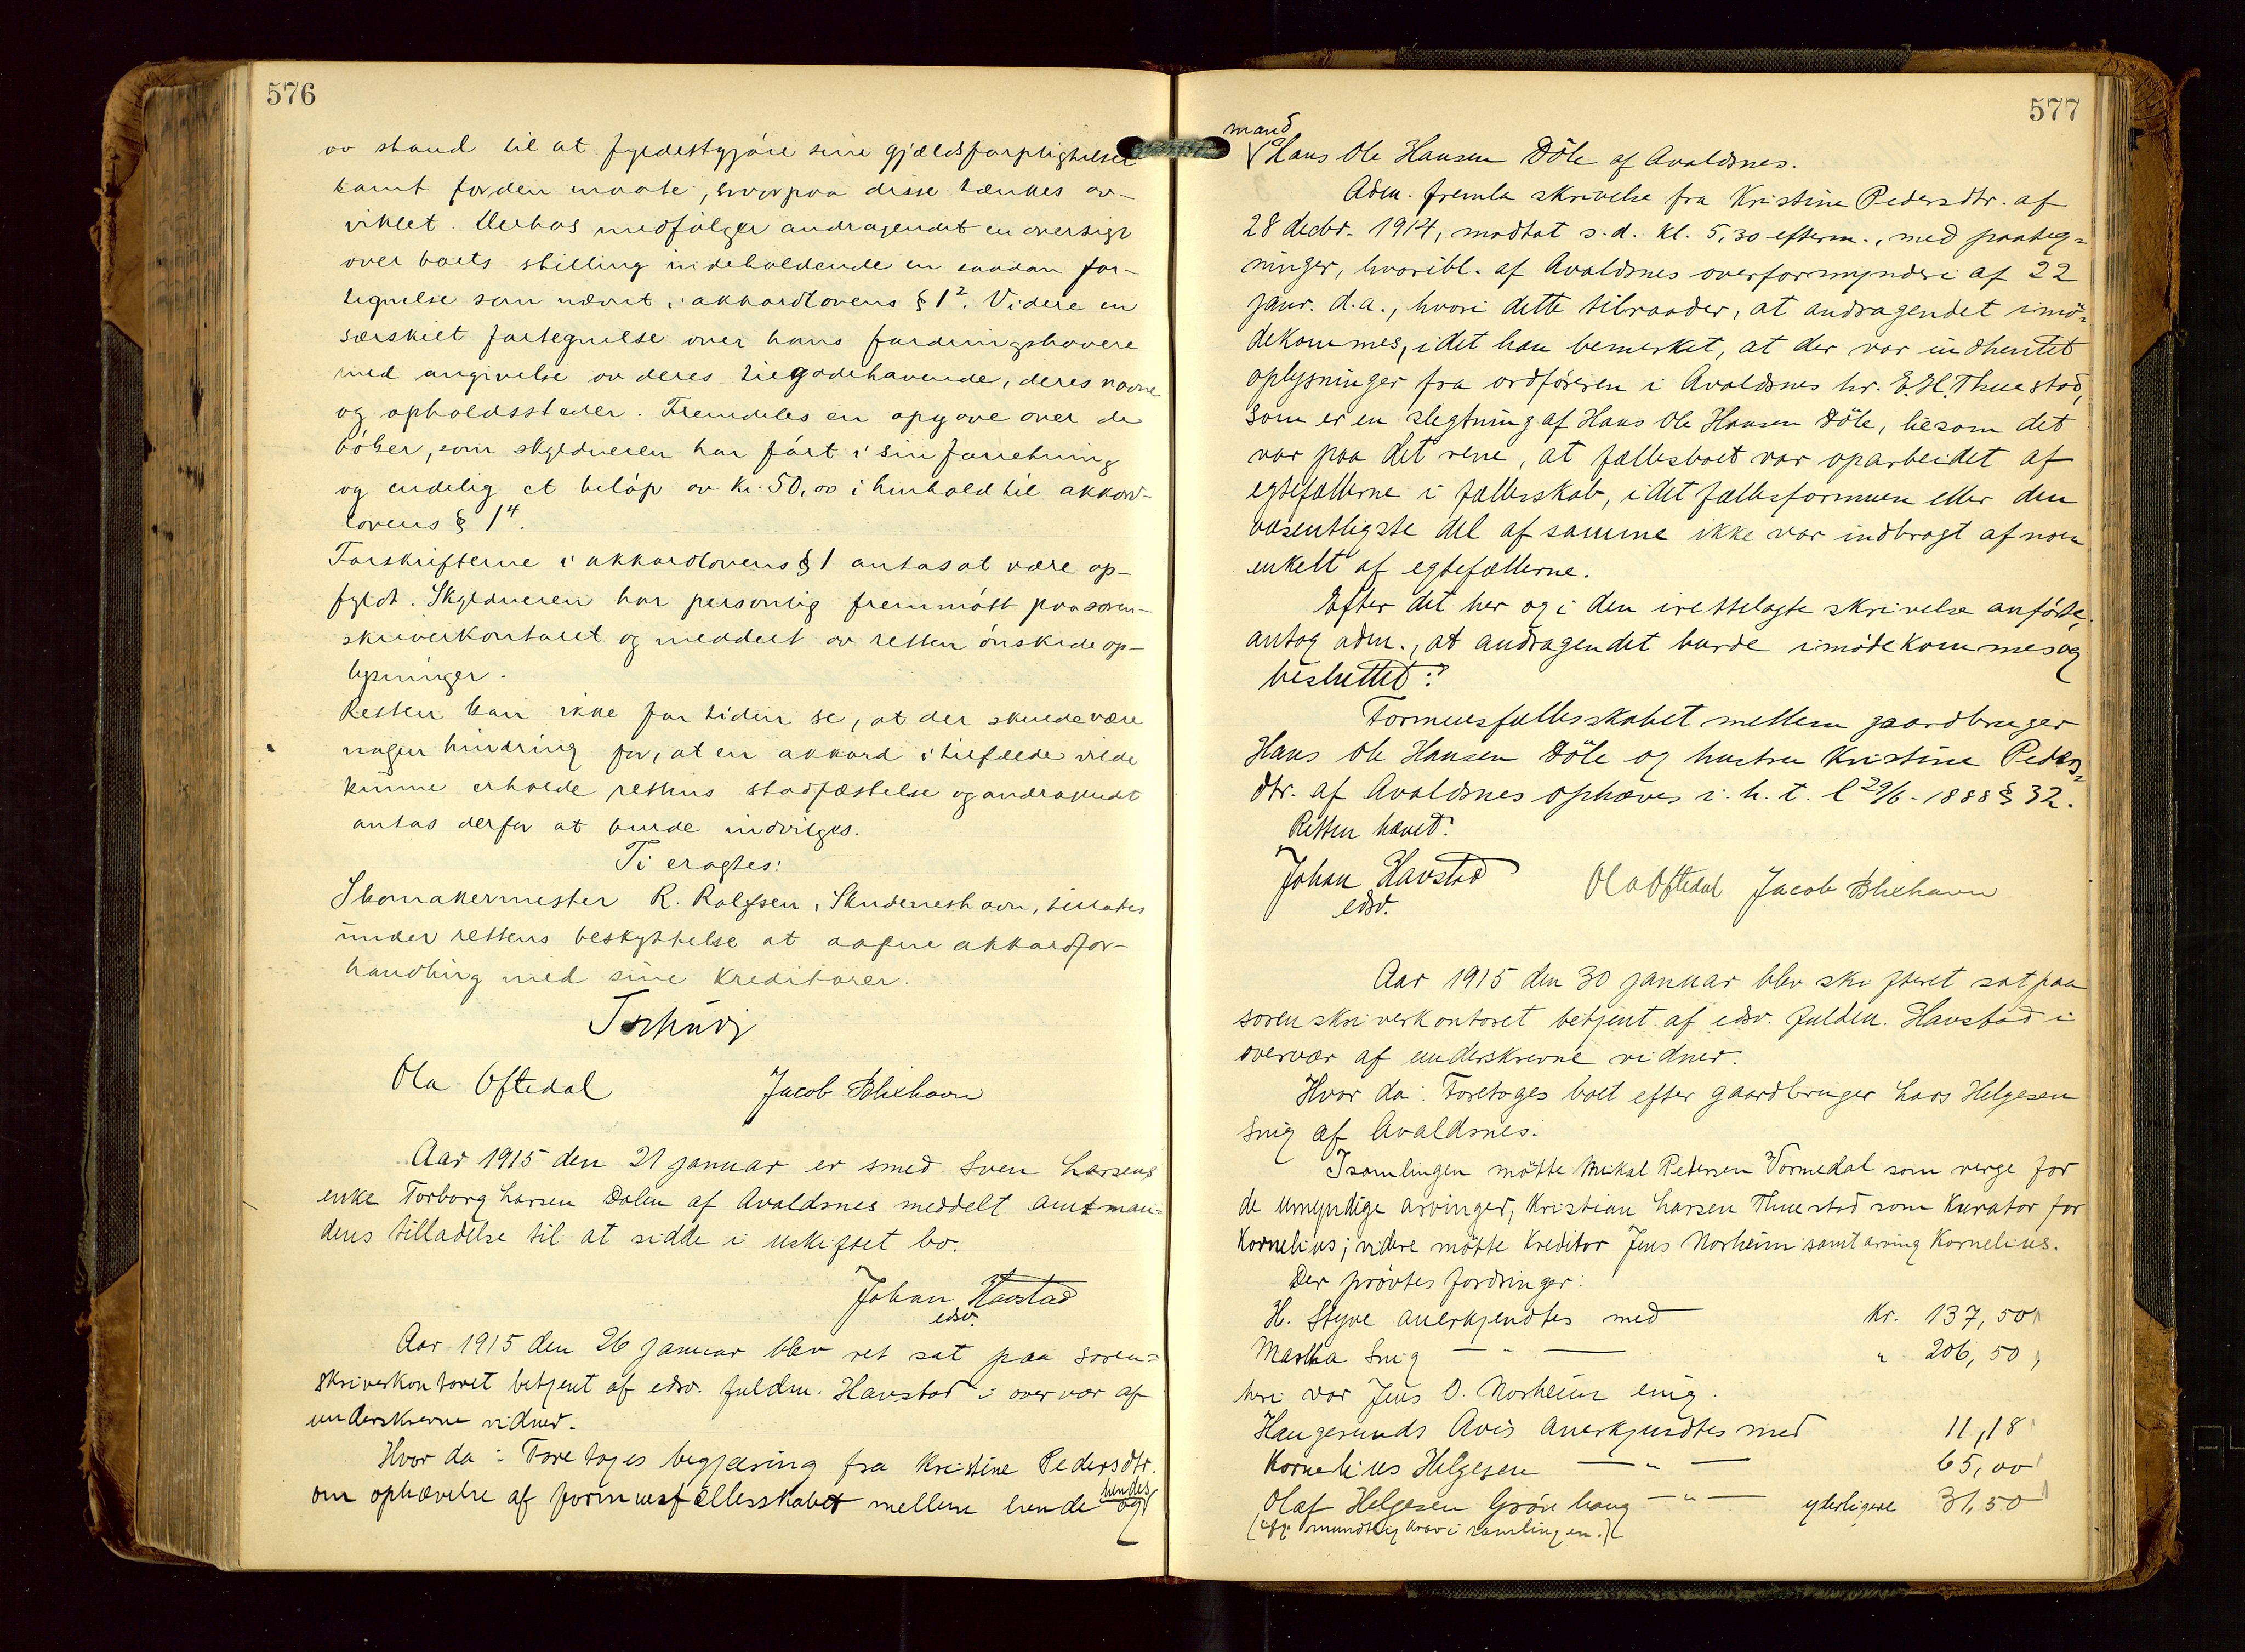 576
av stand til at fyldestgjøre sine gjældsforpligtelser
samt for den maate, hvorpaa disse tænkes av-
viklet. Derhos medfølger andragendet en oversigt
over boets stilling indeholdende en saadan for-
tegnelse som nævnt i akkordlovens § 1². Videre en
særskilt fortegnelse over hans fordringshavere
med angivelse av deres tilgodehavende, deres navne
og opholdssteder. Fremdeles en opgave over de
bøker, som skyldneren har ført i sin forretning
og endelig et beløp av kr. 50,00 i henhold til akkord-
lovens § 1⁴.
Forskrifterne i akkordlovens § 1 antas at være op-
fyldt. Skyldneren har personlig fremmøtt paa soren-
skriverkontoret og meddelt av retten ønskede op-
lysninger.
Retten kan ikke for tiden se, at der skulde være
nogen hindring for, at en akkord i tilfælde vilde
kunne erholde rettens stadfæstelse og andragendet
antas derfor at burde indvilges.
Ti eragtes:
Skomakermester R. Rolfsen, Skudeneshavn, tillates
under rettens beskyttelse at aapne akkordfor-
handling med sine kreditorer.
Tschudj
Ola Oftedal Jacob Blikhavn
Aar 1915 den 21 januar er smed Sven Larsens
enke Torborg Larsen Dalen af Avaldsnes meddelt amtman=
dens tilladelse til at sidde i uskiftet bo.
Johan Havstad
edsv.
Aar 1915 den 26 januar blev ret sat paa soren=
skriverkontoret betjent af edsv. fuldm. Havstad i overvær af
underskrevne vidner.
Hvor da: Foretoges begjæring fra Kristine Pedersdtr.
om ophævelse af formuesfællesskabet mellem hende og hendes
577
mand
Hans Ole Hansen Døle af Avaldsnes.
Adm. fremla skrivelse fra Kristine Pedersdtr. af
28 decbr. 1914, modtat s.d. kl. 5,30 efterm., med paateg=
ninger, hvoribl. af Avaldsnes overformynderi af 22
janr. d.a., hvori dette tilraader, at andragendet imø=
dekommes, idet han bemerket, at der var indhentet
oplysninger fra ordføreren i Avaldsnes hr. E. H. Thuestad,
som er en slegtning af Hans Ole Hansen Døle, likesom det
var paa det rene, at fællesboet var oparbeidet af
egtefællerne i fællesskab, idet fællesformuen eller den
væsentligste del af samme ikke var indbragt af noen
enkelt af egtefællerne.
Efter det her og i den irettelagte skrivelse anførte,
antog adm., at andragendet burde imødekommes og
besluttet:
Formuesfællesskabet mellem gaardbruger
Hans Ole Hansen Døle og hustru Kristine Peders=
dtr. af Avaldsnes ophæves i. h. t. l 29/6-1888 § 32.
Retten hævet.
Johan Havstad Ola Oftedal Jacob Blikhavn
edsv.
Aar 1915 den 30 januar blev skifteret sat paa
sorenskriverkontoret betjent af edsv. fuldm. Havstad i
overvær af underskrevne vidner.
Hvor da: Foretoges boet efter gaardbruger Lars Helgesen
Snig af Avaldsnes.
I samlingen møtte Mikal Petersen Vormedal som verge for
de umyndige arvinger, Kristian Larsen Thuestad som kurator for
Kornelius; videre møtte kreditor Jens Norheim samt arving Kornelius.
Der prøvtes fordringer:
H. Styve anerkjendtes med Kr. 137,50
Martha Snig — " — " 206,50
heri var Jens O. Norheim enig.
Haugesunds Avis anerkjendtes med 11,18
Kornelius Helgesen — " — 65,00
Olaf Helgesen Grønhaug — " — yderligere 31,50
( mundtlig krav i samlingen.)